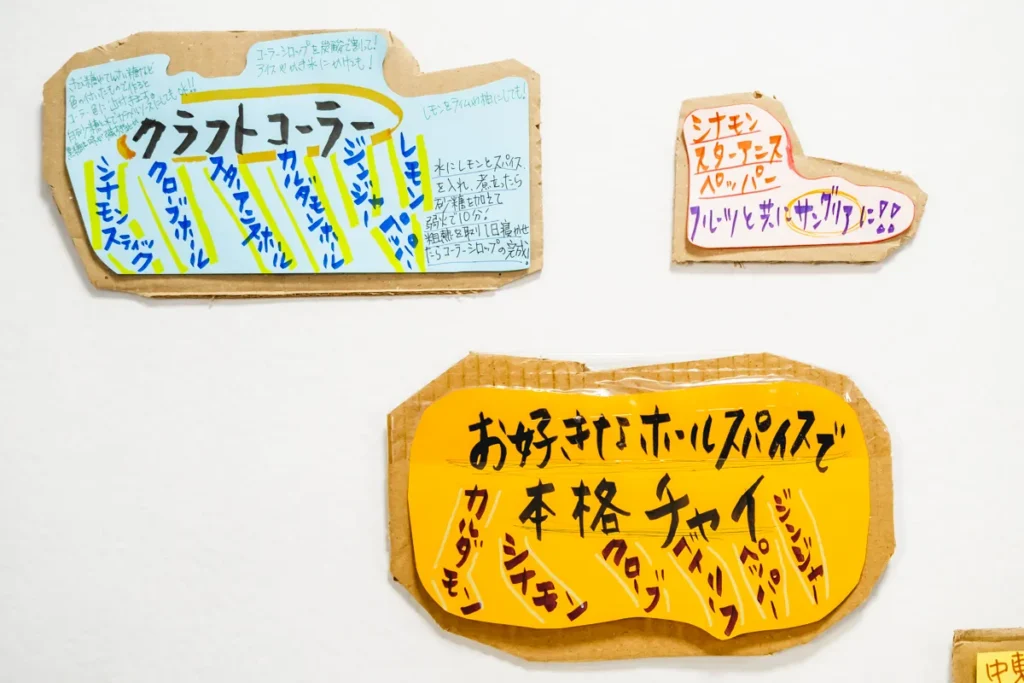 コーラシロップを炭酸で割って!
アイスやかき氷にかけても!
レモンをライムや柚にしても!
クラフトコーラー
シナモンスティック
クローブホール
スターアニスホール
カルダモンホール
ジンジャー
レモン
ペッパー
水にレモンとスパイス
を入れ、煮立ったら
砂糖を加えて
弱火で10分!
粗熱を取り1日寝かせ
たらコーラーシロップの完成!
シナモン
スターアニス
ペッパー
フルーツと共にサングリアに!!
お好きなホールスパイスで
本格チャイ
カルダモン
シナモン
クローブ
ベイリーフ
ペッパー
ジンジャー
中東